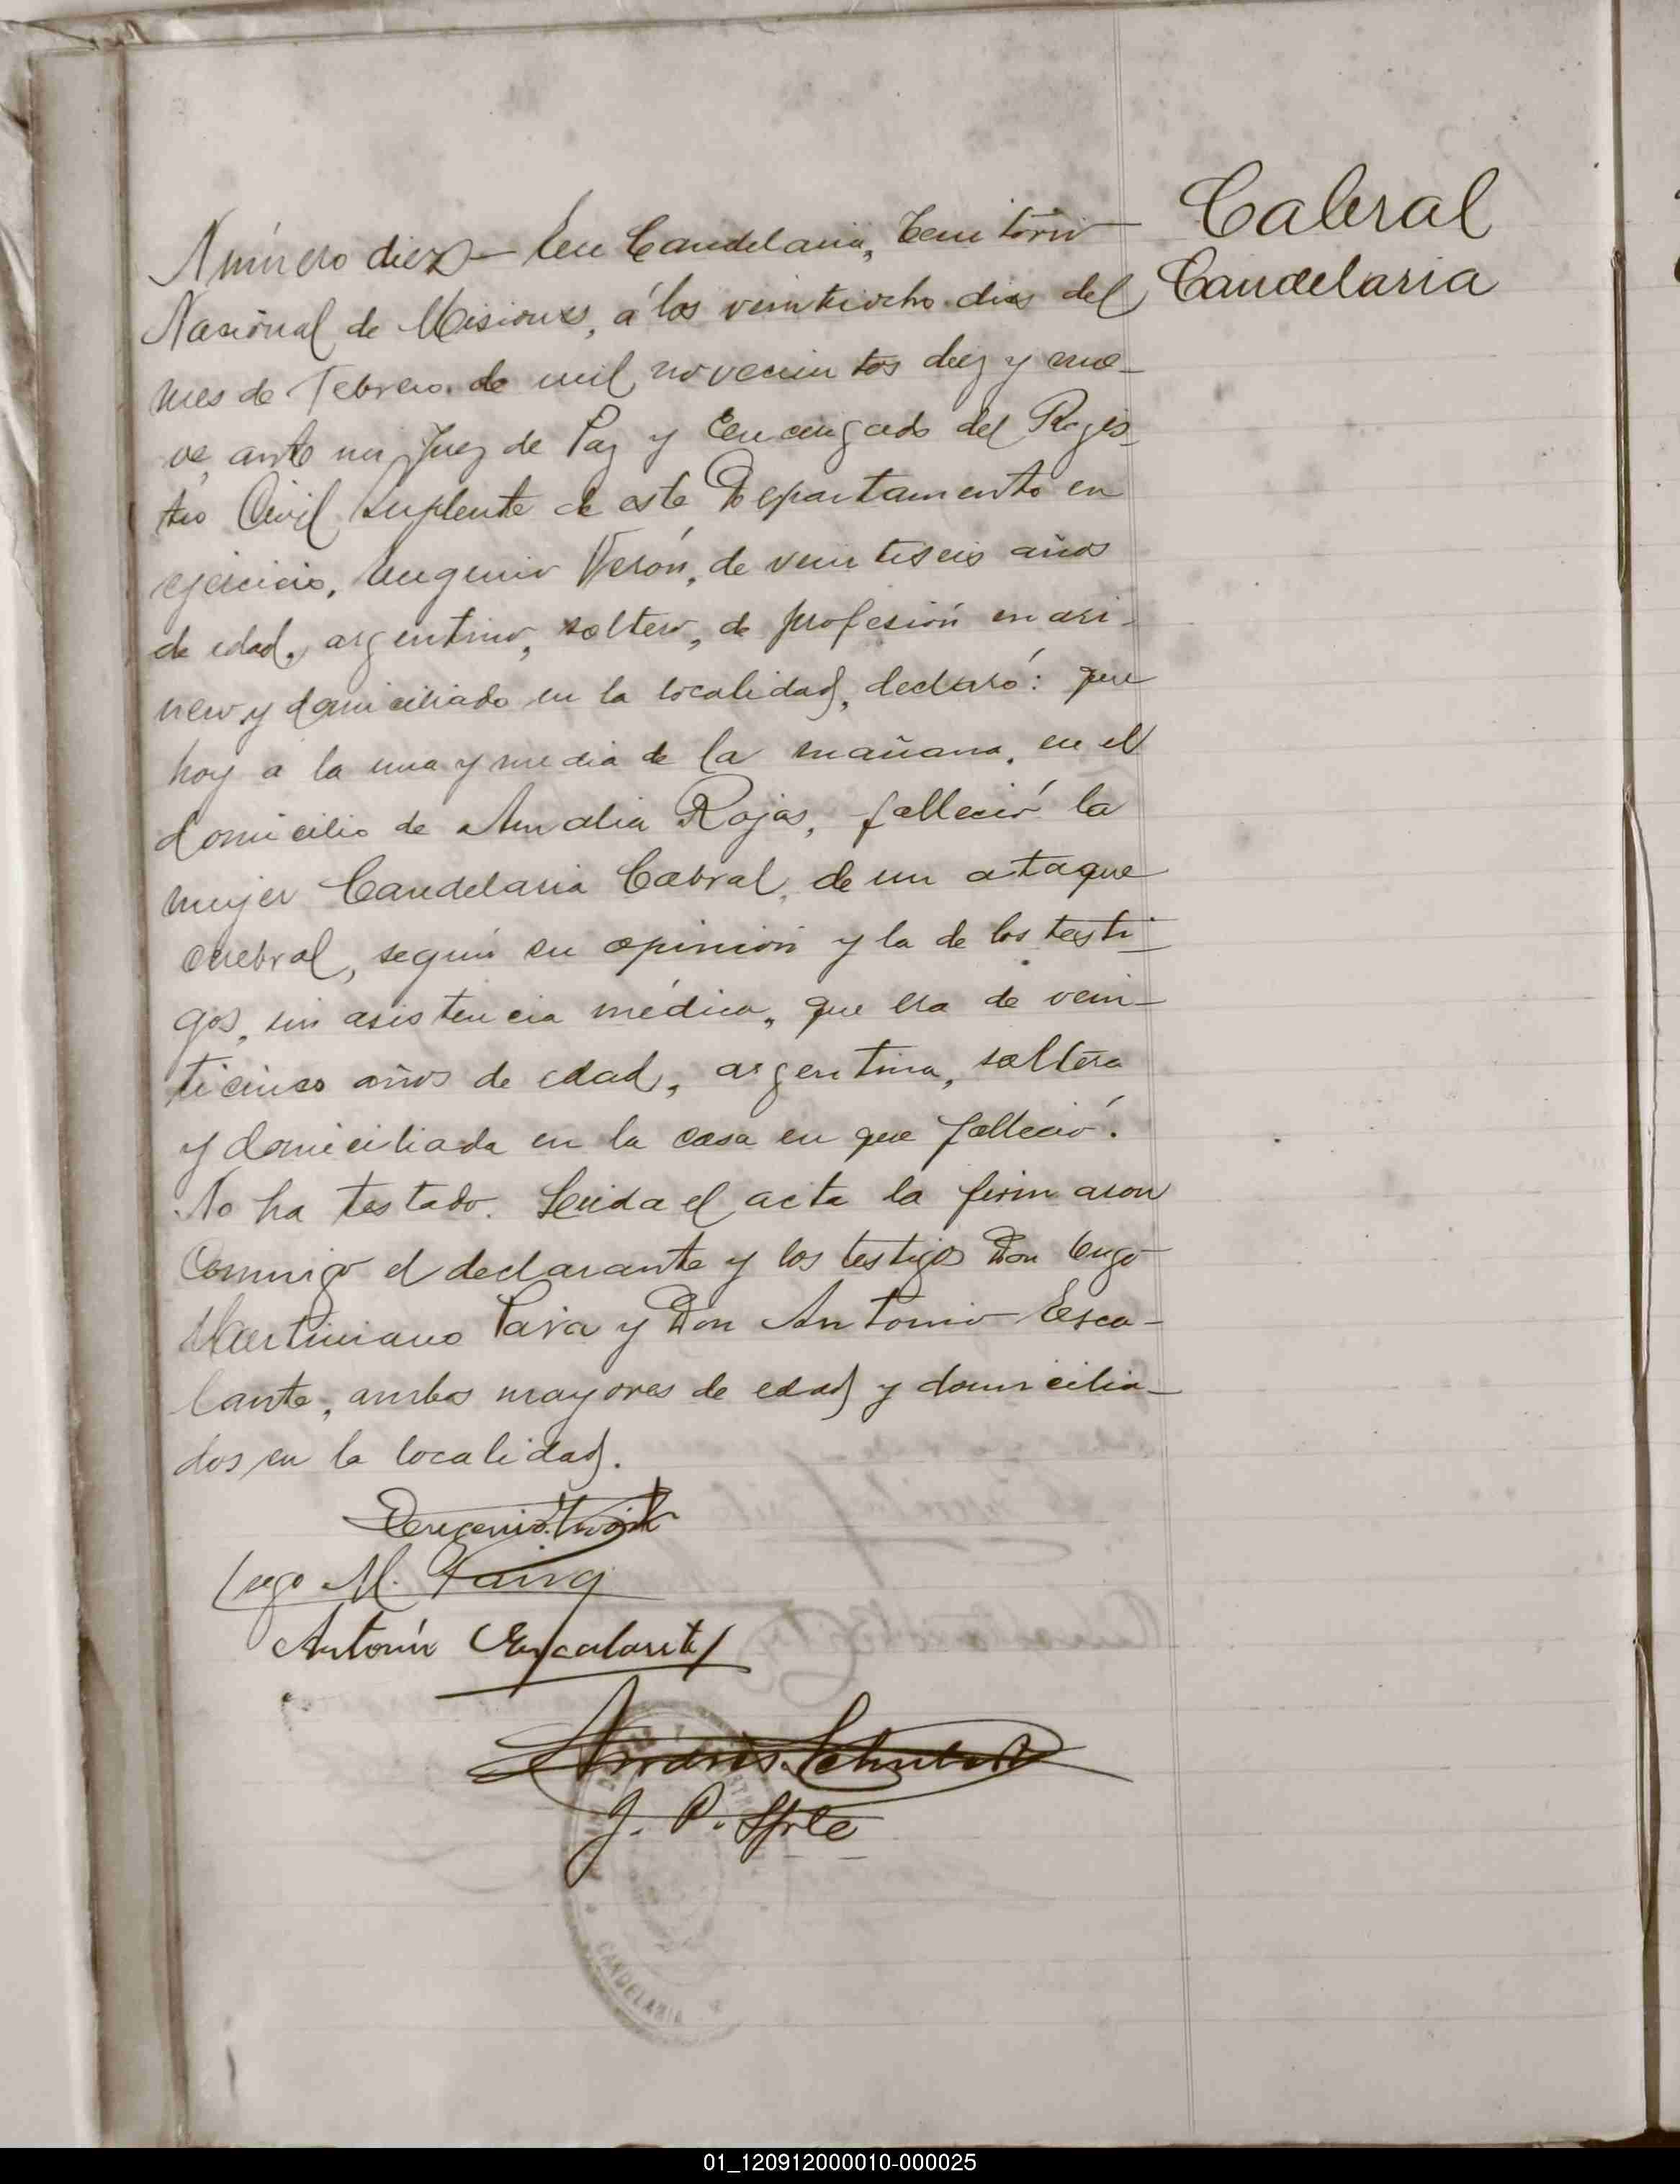 Cabral
Candelaria
Número diez — En Candelaria, Territorio
Nacional de Misiones, á los veintiocho dias del
mes de Febrero de mil novecientos diez y nue-
ve, ante mi Juez de Paz y Encargado del Regis-
tro Civil Suplente de este Departamento en
ejercicio, Eugenio Verón, de veintiseis años
de edad, argentino, soltero, de profesión mari-
nero y domiciliado en la localidad, declaró: que
hoy a la una y media de la mañana, en el
domicilio de Amalia Rojas, falleció la
mujer Candelaria Cabral, de un ataque
cerebral, según su opinión y la de los testi-
gos, sin asistencia médica, que era de vein-
ticinco años de edad, argentina, soltera
y domiciliada en la casa en que falleció.
No ha testado. Leida el acta la firmaron
conmigo el declarante y los testigos Don Lugo
Martiniano Paiva y Don Antonio Esca-
lante, ambos mayores de edad y domicilia-
dos en la localidad.
Eugenio
Lugo M. Paiva
Antonio Escalante
Andrés Schubert
J. P. Splte
CANDELARIA
01_120912000010-000025